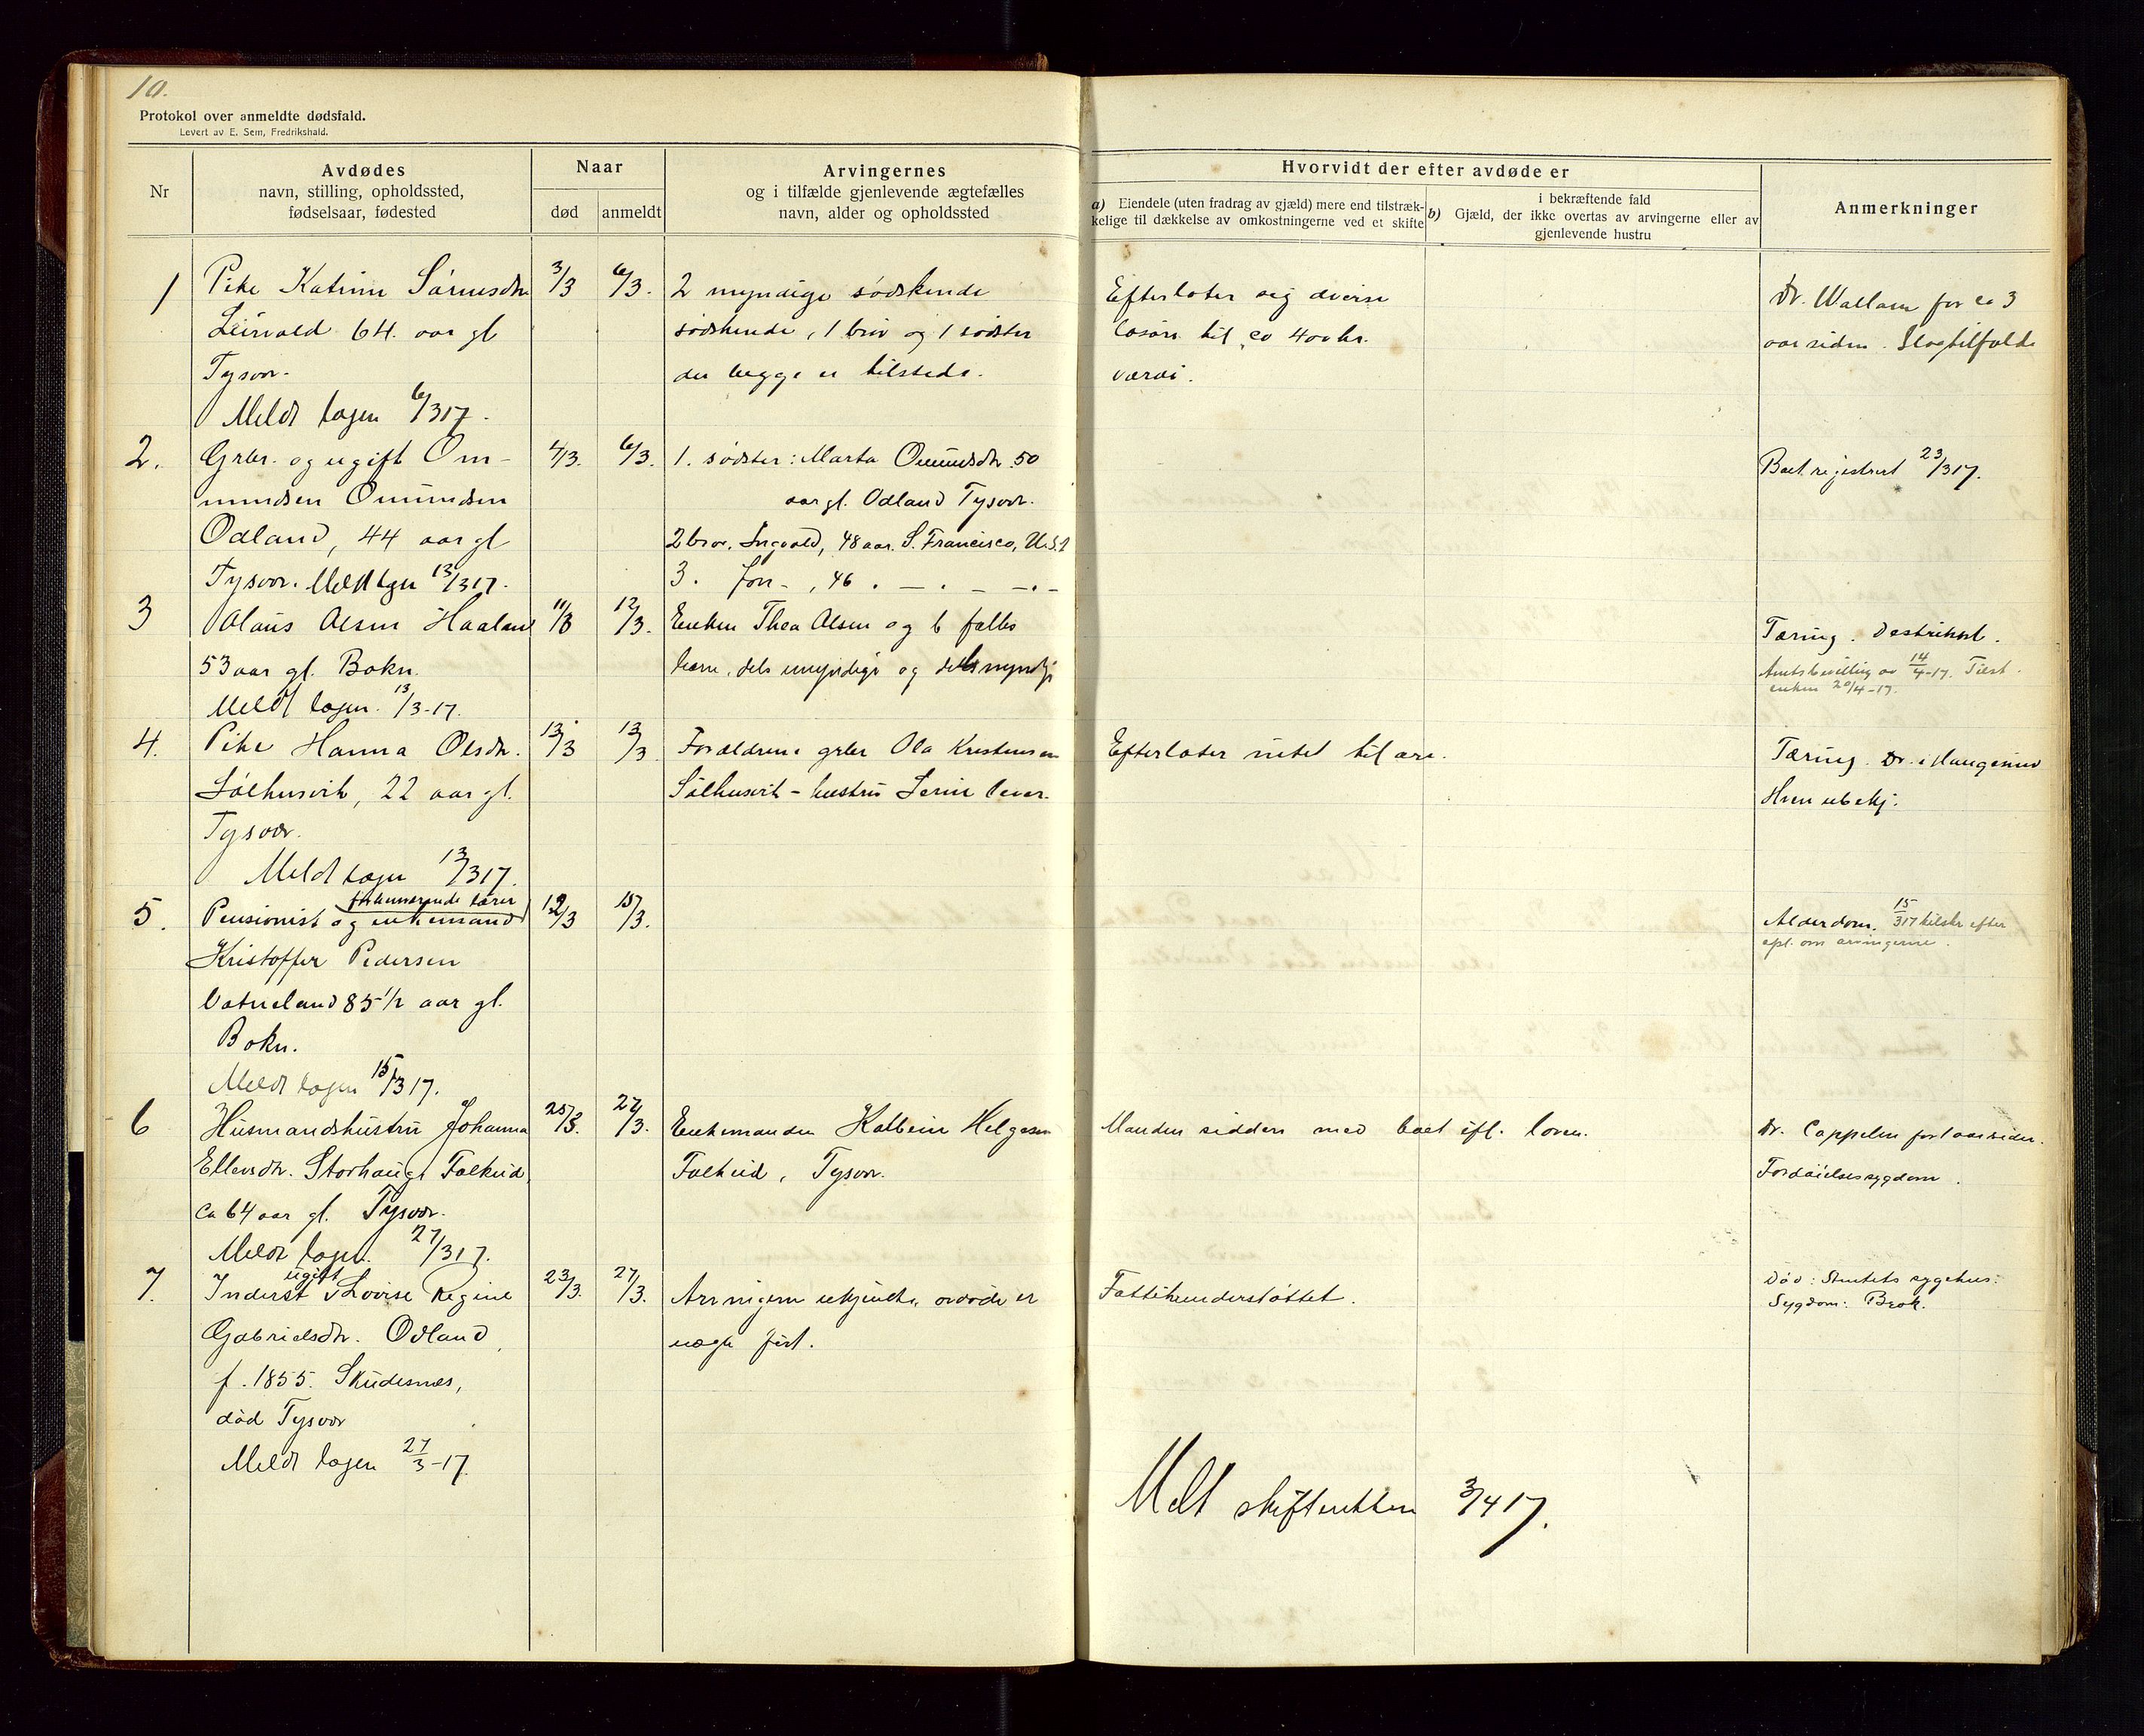 10.
Protokol over anmeldte dødsfald.
Levert av E. Sem, Fredrikshald.
Nr
Avdødes
navn, stilling, opholdssted,
fødselsaar, fødested
Naar
død
anmeldt
Arvingernes
og i tilfælde gjenlevende ægtefælles
navn, alder og opholdssted
Hvorvidt der efter avdøde er
a) Eiendele (uten fradrag av gjæld) mere end tilstræk-
kelige til dækkelse av omkostningerne ved et skifte
i bekræftende fald
b) Gjæld, der ikke overtas av arvingerne eller av
gjenlevende hustru
Anmerkninger
1
Pike Katrine
64. aar gl
Tysvær.
Meldt lagen 6/3 17.
3/3
6/3.
2 myndige sødskende
sødskende, 1 bror og 1 søster
der begge er tilstede.
Efterlater sig diverse
løsøre til ca 400 kr.
værdi.
Dr. Wallace for ca 3
aar siden. Slagtilfælde
2.
Grbr. og ugift Om-
mundsen Omundsen
Odland, 44 aar gl
Tysvær. Meldt lgn 13/3 17.
4/3.
6/3.
1. søster: Marta Omundsdtr. 50
aar gl. Odland Tysvær.
2 bror. Ingvald, 48 aar. S. Francisco, U.S.A
3. Jon - , 46 . — . — —.-
Boet registrert 23/3 17.
3
Olaus Olsen Haaland
53 aar gl. Bokn.
Meldt lagen 13/3-17.
11/3
12/3.
Enken Thea Olsen og 6 fælles
barn, dels umyndige og dels myndig
Tæring. Distriktsl.
Amtsbevilling av 14/4-17. Tilst.
enken 20/4-17.
4.
Pike Hanna Olsdtr.
Sølhusvik, 22 aar gl.
Tysvær.
Meldt lagen 13/3 17.
13/3
13/3
Forældrene grbr Ola Kristensen
Sølhusvik - hustru Serine lever.
Efterlater intet til arv.
Tæring. Dr. i Haugesund
Hvem ubekj.
5.
forhenværende lærer
Pensionist og enkemand
Kristoffer Pedersen
Vatneland 85 1/2 aar gl.
Bokn.
Meldt lagen 15/3 17.
12/3
15/3.
Alderdom. 15/3 17 tilskr efter
opl. om arvingerne.
6
Husmandshustru Johanna
Ellevsdtr. Storhaug Falkeid
ca 64 aar gl. Tysvær.
Meldt lagen 27/3 17.
25/3.
27/3.
Enkemanden Kolbein Helgesen
Falkeid, Tysvær.
Manden sidder med boet ifl. loven.
Dr. Cappelen for 1 aar siden.
Fordøielsessygdom.
7.
ugift
Inderst Lovise Regine
Gabrielsdtr. Odland,
f. 1855. Skudesnes,
død Tysvær
Meldt lagen 27/3-17.
23/3.
27/3.
Arvingerne ukjendte, avdøde er
uægte født.
Fattikunderstøttet.
Død: Amtets sygehus:
Sygdom: Brok.
Meldt skifteretten 3/4 17.